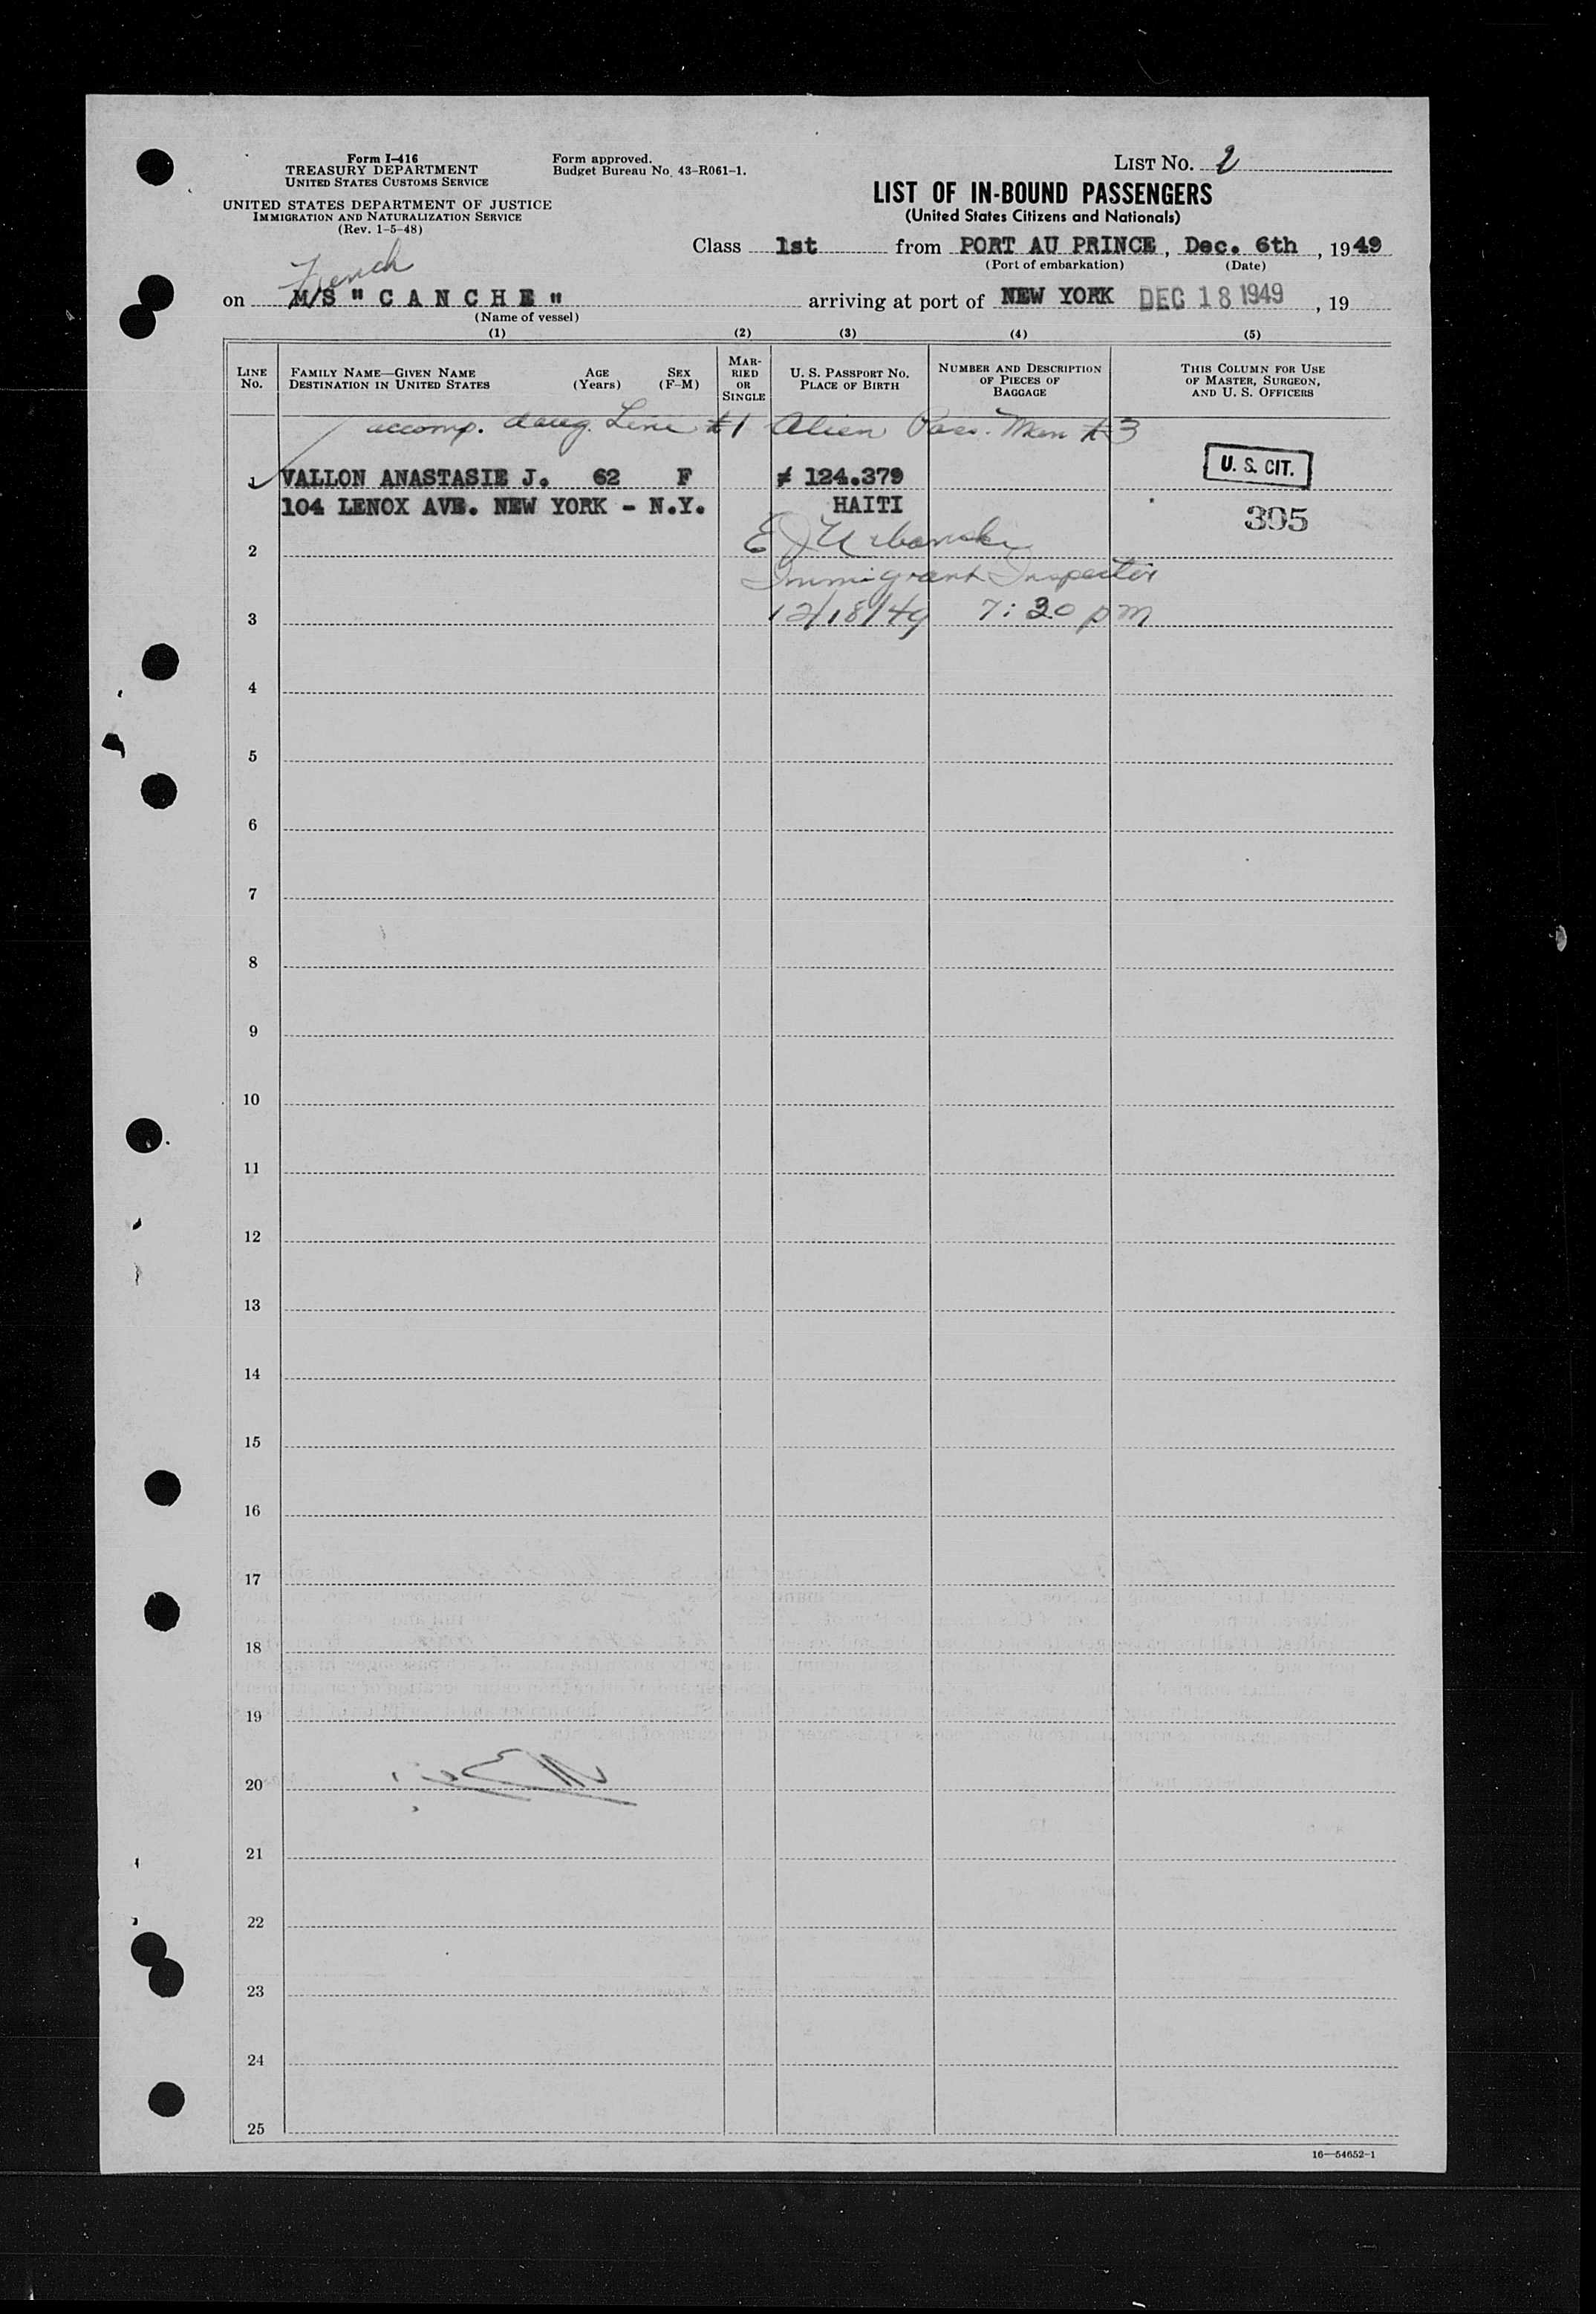 Form I-416
TREASURY DEPARTMENT
UNITED STATES CUSTOMS SERVICE
UNITED STATES DEPARTMENT OF JUSTICE
IMMIGRATION AND NATURALIZATION SERVICE
(Rev. 1-5-48)
Form approved.
Budget Bureau No. 43-R061-1.
LIST NO. 2
LIST OF IN-BOUND PASSENGERS
(United States Citizens and Nationals)
Class 1st from PORT AU PRINCE, Dec. 6th, 1949
(Port of embarkation) (Date)
French
on M/S " C A N C H E " arriving at port of NEW YORK DEC 18 1949, 19
(Name of vessel)
(1) (2) (3) (4) (5)
LINE NO.
FAMILY NAME—GIVEN NAME
DESTINATION IN UNITED STATES
AGE (Years)
SEX (F-M)
MARRIED OR SINGLE
U. S. PASSPORT NO.
PLACE OF BIRTH
NUMBER AND DESCRIPTION OF PIECES OF BAGGAGE
THIS COLUMN FOR USE OF MASTER, SURGEON, AND U. S. OFFICERS
accomp. daug. Line #1 Alien Pass. Man #3
1 VALLON ANASTASIE J. 62 F # 124.379 U. S. CIT.
104 LENOX AVE. NEW YORK - N.Y. HAITI 305
2 E J Urbanski
Immigrant Inspector
3 12/18/49 7:30 pm
4
5
6
7
8
9
10
11
12
13
14
15
16
17
18
19
20
21
22
23
24
25
16—54652-1